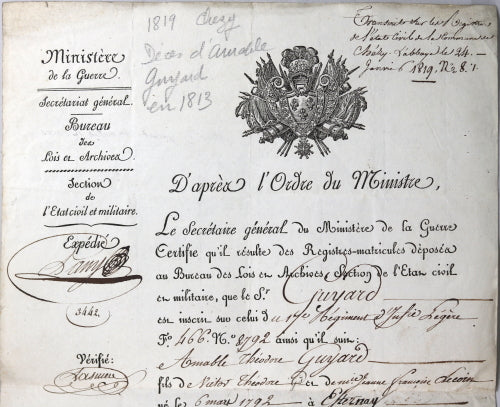 1819 Chezy
Deces d'Amable
Guyard
en 1813
Transcrit sur les Registres
de l'état Civil de la Commune de
Chézy L'abbaye le 24
Janvier 1819. N.º 8.
Ministère
de la Guerre.
Secrétariat général.
Bureau
des
Lois et Archives.
Section
de
l'Etat civil et militaire.
Expédié
3442.
Vérifié:
D'après l'Ordre du Ministre,
Le Secrétaire général du Ministère de la Guerre
Certifie qu'il résulte des Registres-matricules déposés
au Bureau des Lois et Archives (Section de l'Etat civil
et militaire, que le S.r Guyard
est inscrit sur celui du 17e Régiment d'Inf.ie Légère
F.o 466. N.o 8792 ainsi qu'il suit:
Amable Théodore Guyard
fils de Victor Théodore et de Jeanne Françoise
né le 6 mars 1792 à Esternay